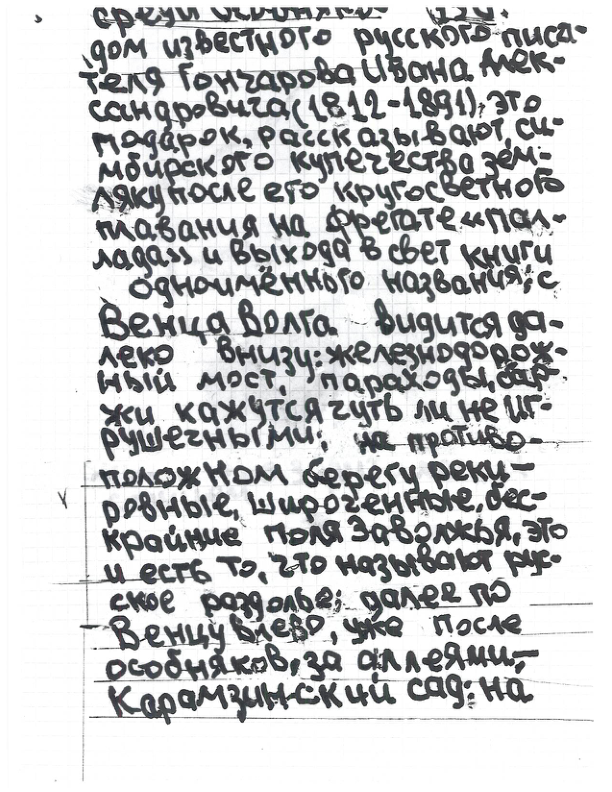 среди особняков
дом известного русского писа-
теля Гончарова Ивана Алек-
сандровича (1812-1891), это
подарок, рассказывают, си-
мбирского купечества зем-
ляку после его кругосветного
плавания на фрегате «Пал-
лада» и выхода в свет книги
одноимённого названия; с
Венца Волга видится да-
леко внизу: железнодорож-
ный мост, параходы, бар-
жи кажутся чуть ли не иг-
рушечными; на противо-
положном берегу реки-
ровные, широченные, бес-
крайние поля Заволжья, это
и есть то, что называют рус-
ское раздолье; далее по
Венцу влево, уже после
особняков, за аллеями,-
Карамзинский сад: на